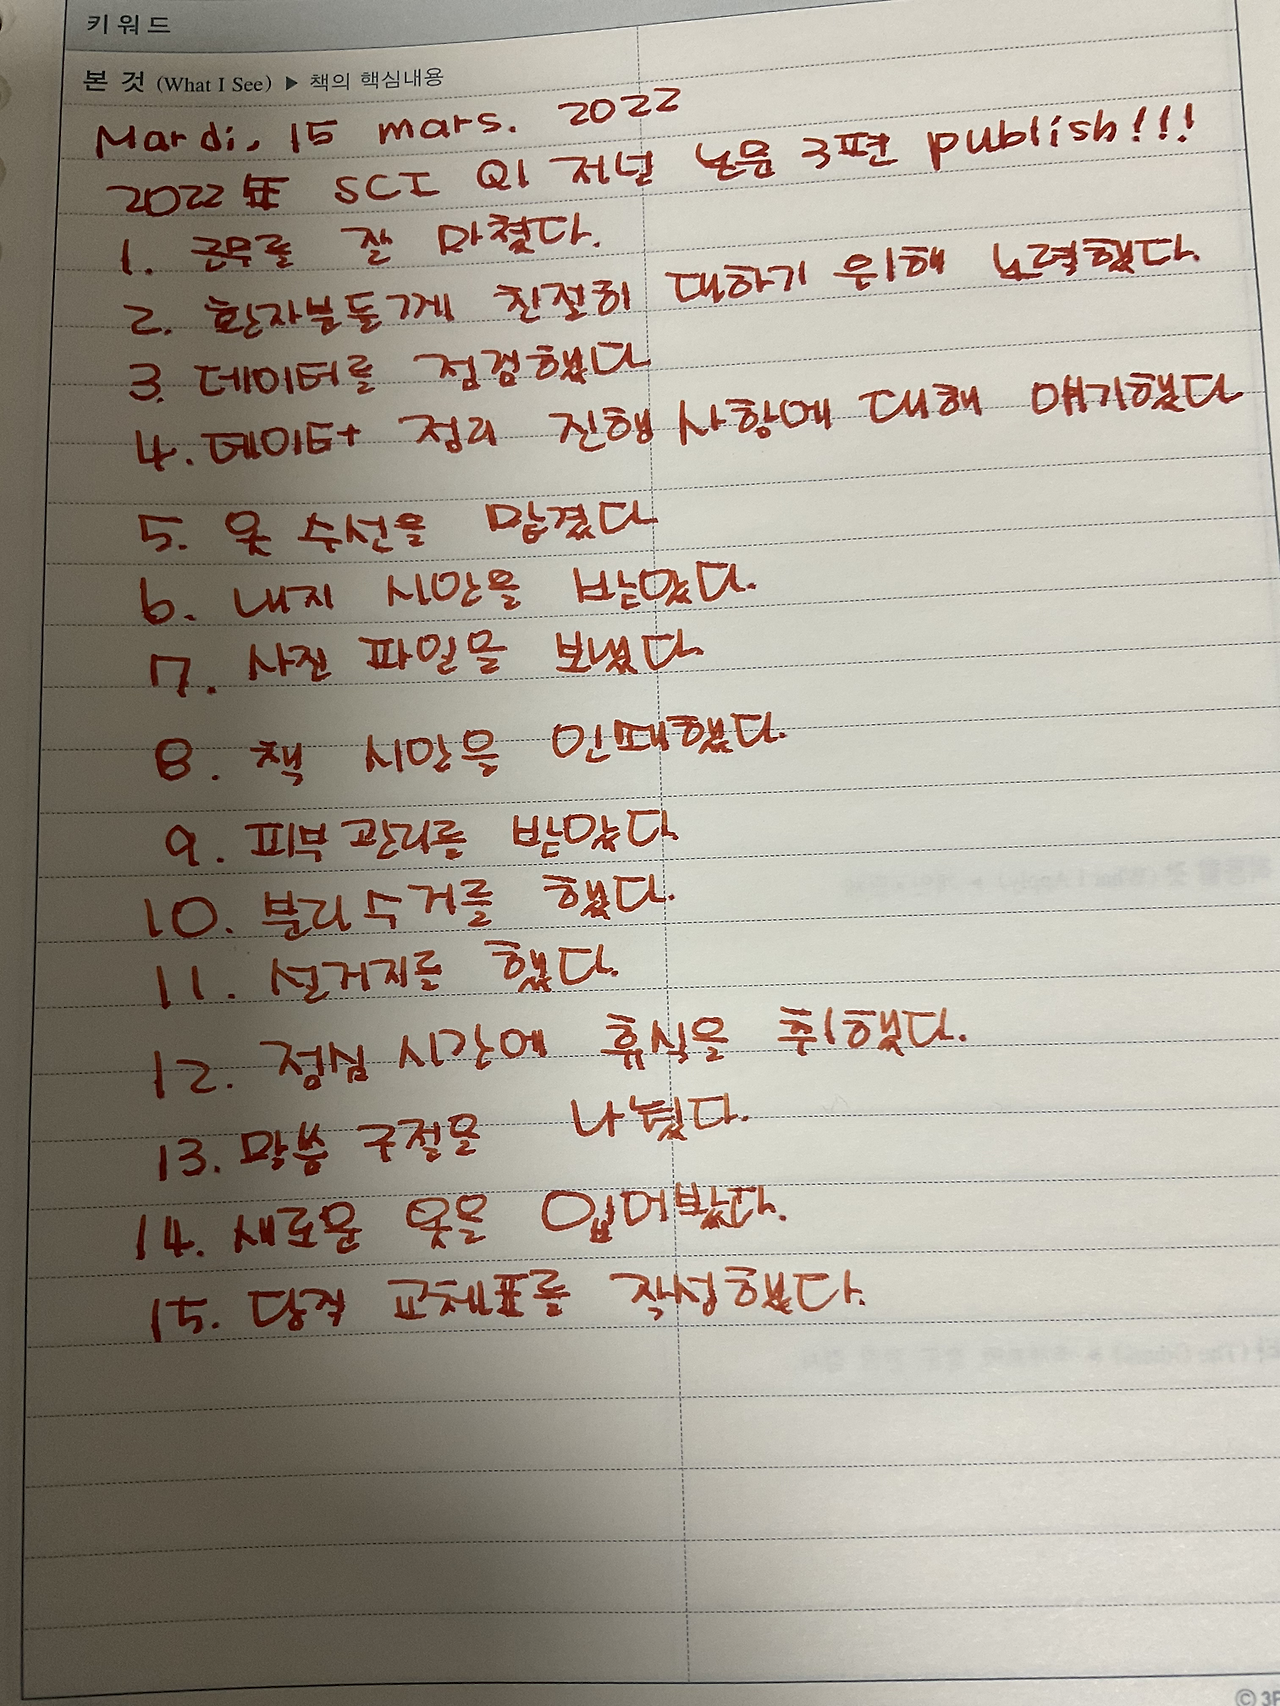 키워드
본 것 (What I See) ▶ 책의 핵심내용
Mardi, 15 mars. 2022
2022年 SCI Q1 저널 논문 3편 publish!!!
1. 근무를 잘 마쳤다.
2. 환자분들께 친절히 대하기 위해 노력했다.
3. 데이터를 점검했다
4. 데이터 정리 진행 사항에 대해 얘기했다
5. 옷 수선을 맡겼다
6. 내지 시안을 받았다.
7. 사진 파일을 보냈다.
8. 책 시안을 인쇄했다.
9. 피부관리를 받았다
10. 분리수거를 했다.
11. 설거지를 했다.
12. 점심 시간에 휴식을 취했다.
13. 말씀 구절을 나눴다.
14. 새로운 옷을 입어봤다.
15. 당직 교체표를 작성했다.